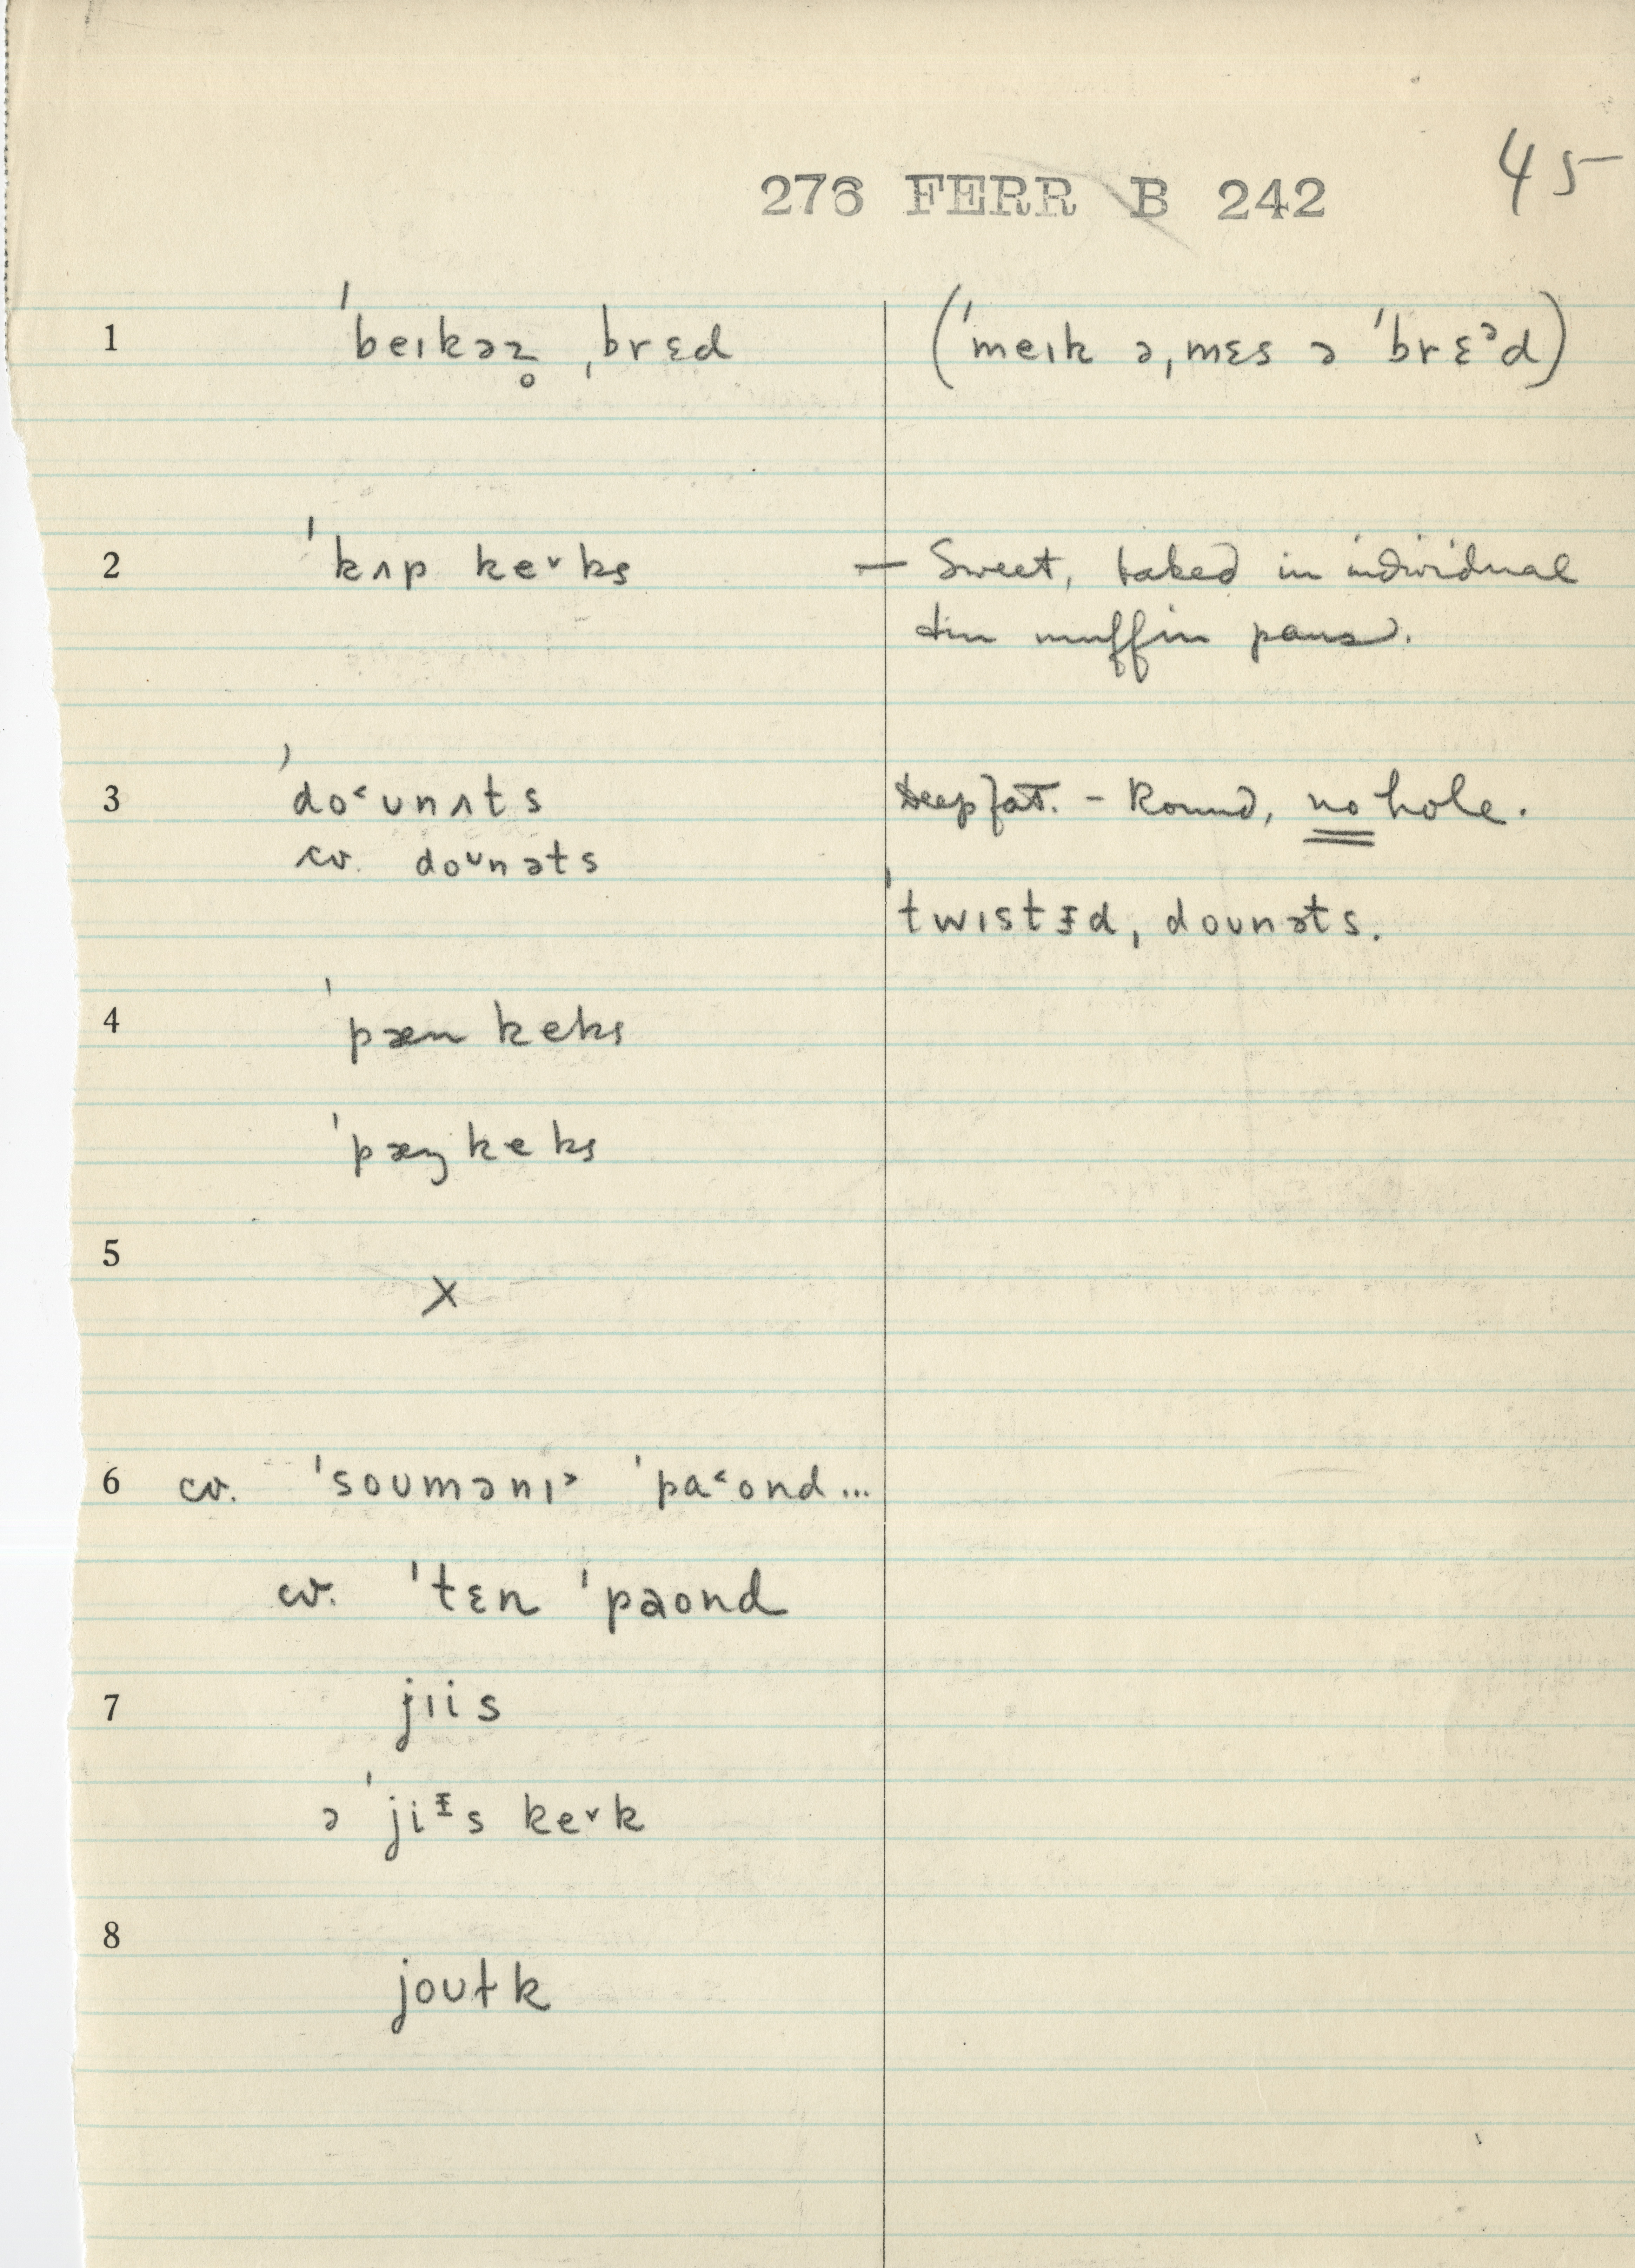 45
276 FERR B 242
1 ˈbeɪkəz̥ ˌbrɛd (ˈmeɪk əˌmɛs ə ˈbrɛᵊd)
2 ˈkʌp keᵛks — Sweet, baked in individual
tin muffin pans.
3 ˈdo˂ʊnʌts deep fat. - Round, no hole.
cv. doᶷnəts
ˈtwɪstɪ̵dˌdoʊnəts.
4 ˈpæn keks
ˈpæŋkeks
5 X
6 cv. ˈsoʊmənɪ˃ ˈpa˂ond...
cv. ˈtɛn ˈpaond
7 jɪis
ə ˈjiᵻs keᵛk
8 joʊɫk